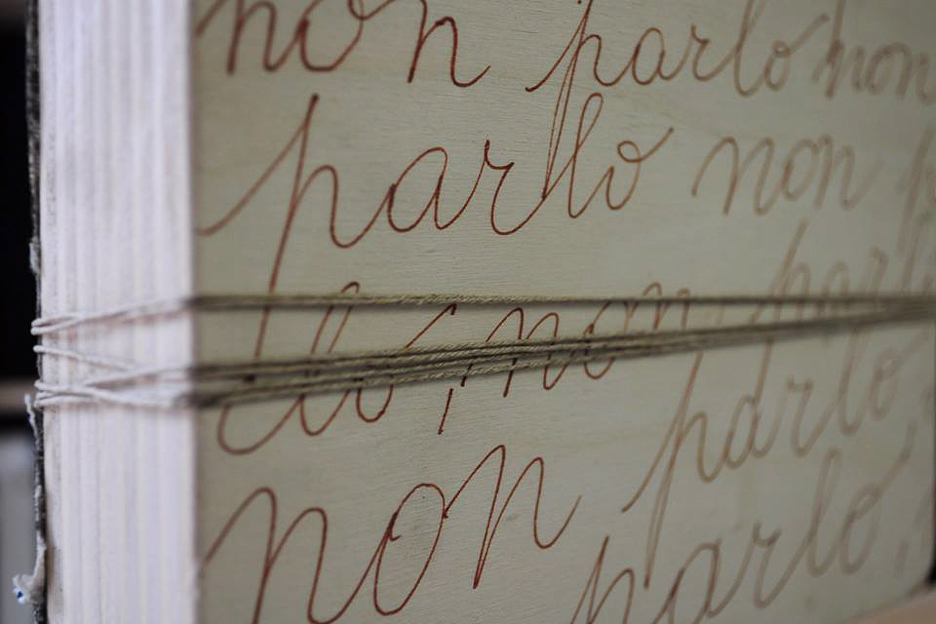 non parlo non
parlo non
lo, non parl
non parlo
parlo,